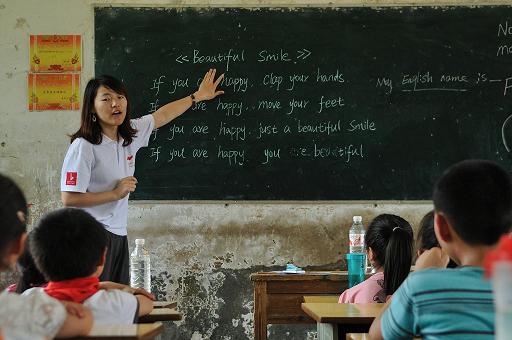 <<Beautiful Smile>>
If you are happy, Clap your hands.
If you are happy.. move your feet
If you are happy.. just a beautiful Smile
If you are happy. you are beautiful
My English name is